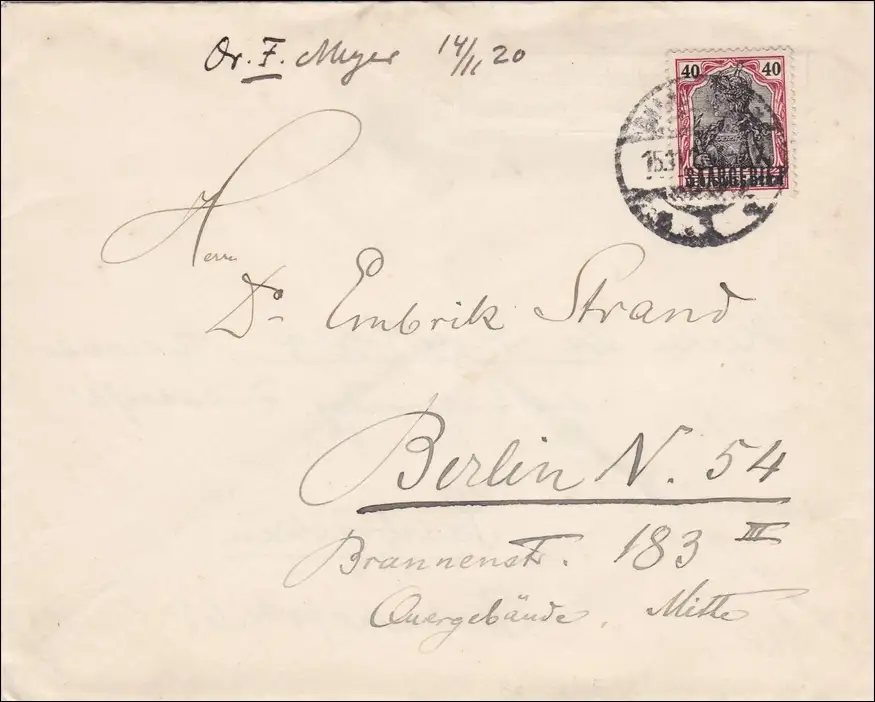 Dr. F. Meyer 14/11 20
40 40
SAARGEBIET
Herrn
Dr. Embrik Strand
Berlin N. 54
Brunnenstr. 183 III
Quergebäude, Mitte